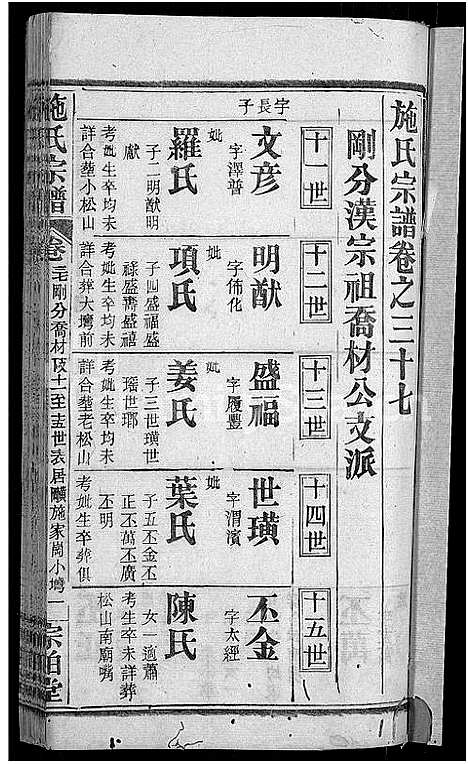 施氏宗譜卷之三十七
剛分漢宗祖喬材公支派
十一世
十二世
十三世
十四世
十五世
字長子
文彦
字澤普
妣
羅氏
子二明猷明
獻
考妣生卒均未
詳合塟小松山
明猷
字佈化
妣
項氏
子四盛福盛
祿盛壽盛禧
考妣生卒均未
詳合葬大塆前
盛福
字履豐
妣
姜氏
子三世璜世
瑤世瑯
考妣生卒均未
詳合塟老松山
世璜
字渭濱
妣
葉氏
子五丕金丕
正丕萬丕廣
丕明
考妣生卒葬俱
丕金
字太經
陳氏
女一適蕭
考生卒未詳葬
松山南廟嘴
施氏宗譜
卷三七剛分喬材支十一至十五世表居
施家崗小塆
一